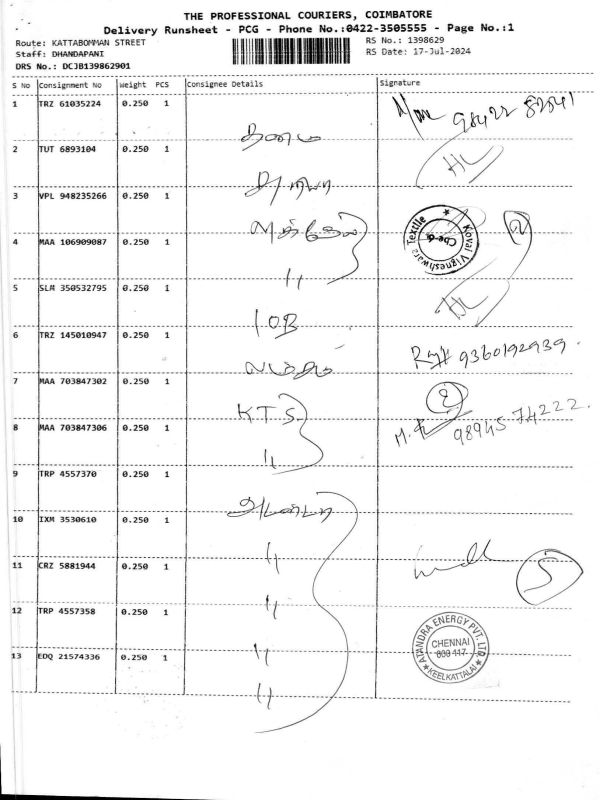 THE PROFESSIONAL COURIERS, COIMBATORE
Delivery Runsheet - PCG - Phone No.:0422-3505555 - Page No.:1
Route: KATTABOMMAN STREET
Staff: DHANDAPANI
DRS No.: DCJB139862901
RS No.: 1398629
RS Date: 17-Jul-2024
S No Consignment No Weight PCS Consignee Details Signature
1 TRZ 61035224 0.250 1
2 TUT 6893104 0.250 1
HL
3 VPL 948235266 0.250 1
Koval Vigneshwara Textile
Cbe-6
2
4 MAA 106909087 0.250 1 "
5 SLM 350532795 0.250 1 IOB
HL
6 TRZ 145010947 0.250 1 9360192939
7 MAA 703847302 0.250 1 KTS
2
8 MAA 703847306 0.250 1 "
98945 74222
9 TRP 4557370 0.250 1
10 IXM 3530610 0.250 1 "
11 CRZ 5881944 0.250 1 "
5
12 TRP 4557358 0.250 1 "
13 EDQ 21574336 0.250 1 "
ATANDRA ENERGY PVT. LTD.
CHENNAI
600 117
KEELKATTALAI